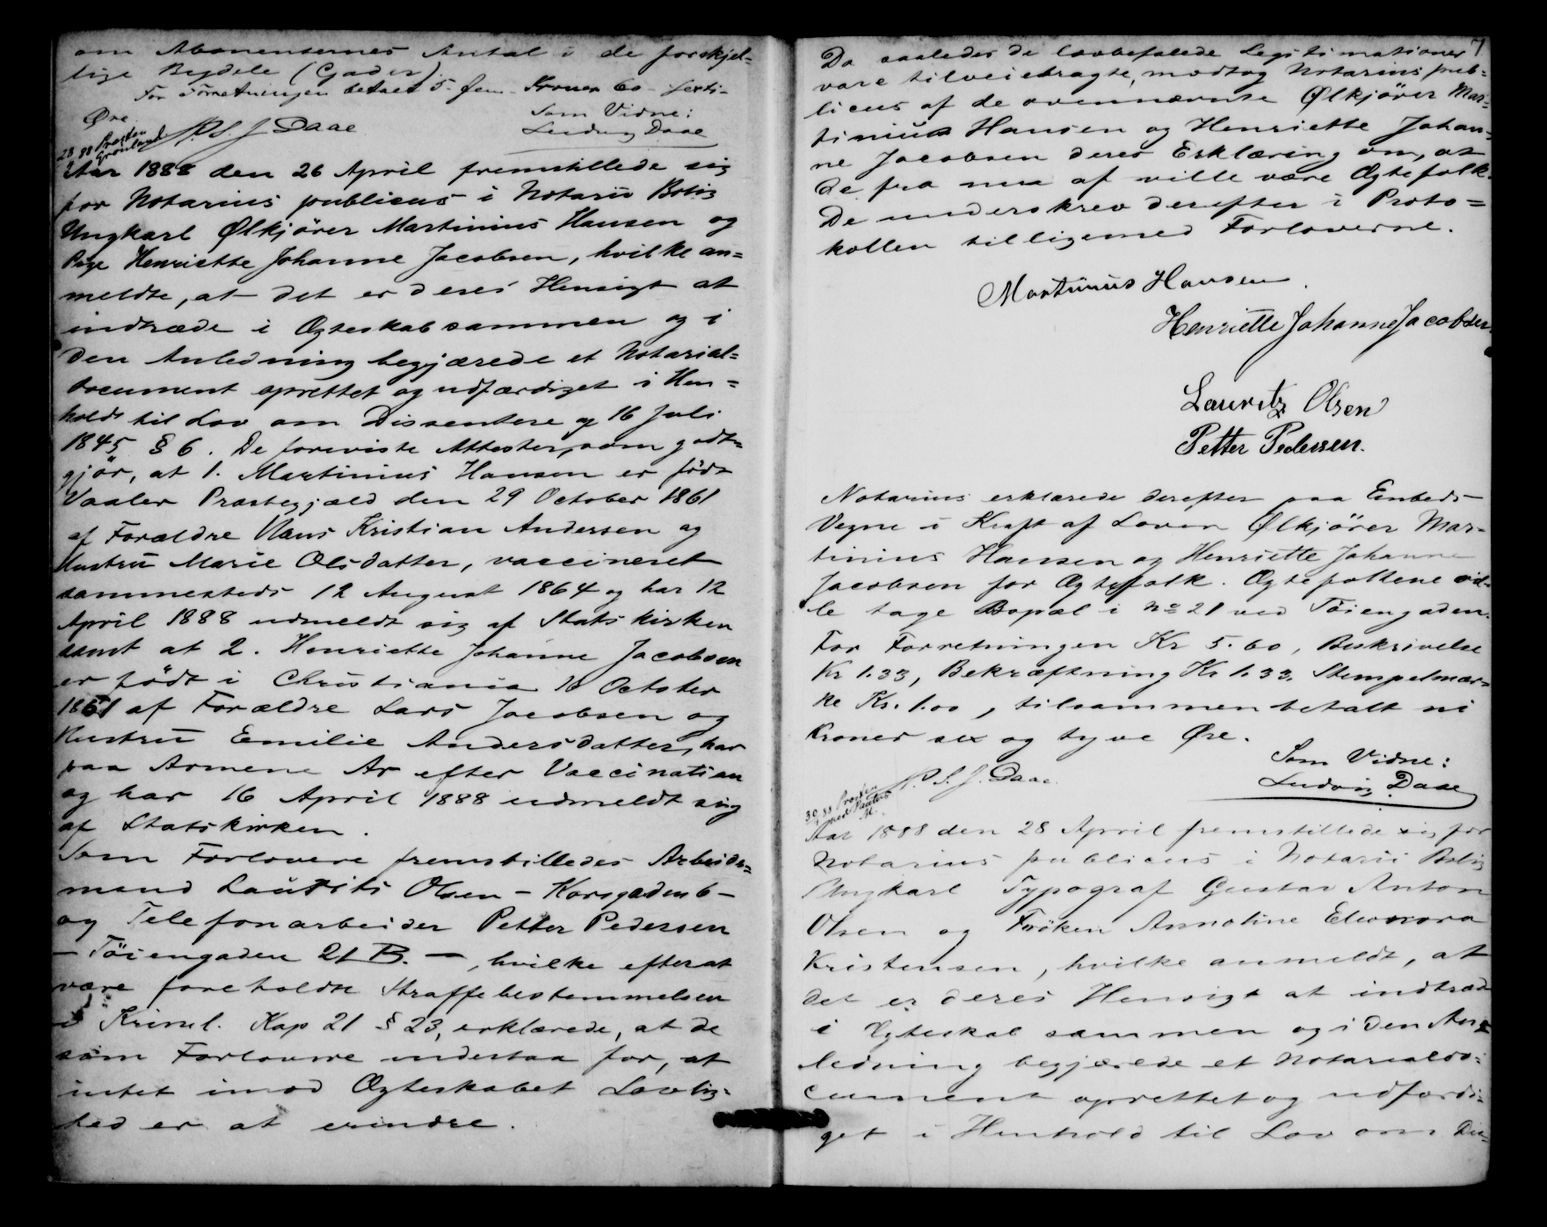 om Abonenternes Antal i de forskjel-
lige Bydele (Gader)
For Forretningen betalt 5 fem Kroner 60 sexti-
Øre. Som Vidne:
P. S. J. Daae Ludvig Daae
Aar 1888 den 26 April fremstillede sig
for Notarius publicus i Notarii Bolig
Ungkarl Ølkjører Martinius Hansen og
Pige Henriette Johanne Jacobsen, hvilke an=
meldte, at det er deres Hensigt at
indtræde i Ægteskab sammen og i
den Anledning begjærede et Notarial=
document oprettet og udfærdiget i Hen=
hold til Lov om Dissentere af 16 Juli
1845 § 6. De foreviste Attester, som godt=
gjör, at 1. Martinius Hansen er född
Vaaler Præstegjæld den 29 October 1861
af Forældre Hans Kristian Andersen og
Hustru Marie Olsdatter, vaccineret
sammesteds 12 August 1864 og har 12
April 1888 udmeldt sig af Statskirken
samt at 2. Henriette Johanne Jacobsen
er født i Christiania 10 October
1861 af Forældre Lars Jacobsen og
Hustru Emilie Andersdatter, har
paa Armene Ar efter Vaccination
og har 16 April 1888 udmeldt sig
af Statskirken.
Som Forlovere fremstilledes Arbeids=
mand Laurits Olsen - Korsgaden 6 -
og Telefonarbeider Petter Pedersen
- Töiengaden 21 B. -, hvilke efterat
være foreholdte Straffebestemmelsen
i Kriml. Kap 21 § 23, erklærede, at de
som Forlovere indestaa for, at
intet imod Ægteskabet Lovlig-
hed er at erindre.

7
Da saaledes de lovbefalede Legitimationer
vare tilveiebragte, modtog Notarius pub=
licus af de ovennævnte Ølkjører Mar=
tinius Hansen og Henriette Johan=
ne Jacobsen deres Erklæring om, at
de fra nu af ville være Ægtefolk.
De underskrev derefter i Proto=
kollen tilligemed Forloverne.
Martinius Hansen.
Henriette Johanne Jacobsen
Lauritz Olsen
Petter Pedersen.
Notarius erklærede derefter paa Embeds-
Vegne i Kraft af Loven Ølkjører Mar-
tinius Hansen og Henriette Johanne
Jacobsen for Ægtefolk. Ægtefolkene vil-
le tage Bopæl i No 21 ved Töiengaden.
For Forretningen Kr 5.60, Beskrivelse
Kr 1.33, Bekræftning Kr 1.33, Stempelmær=
ke Kr. 1.00, tilsammen betalt ni
Kroner sex og tyve Øre.
Som Vidne:
P. S. J. Daae Ludvig Daae
Aar 1888 den 28 April fremstillede sig for
Notarius publicus i Notarii Bolig
Ungkarl Typograf Gustav Anton
Olsen og Fröken Annoline Eleonora
Kristensen, hvilke anmeldt, at
det er deres Hensigt at indtræd
i Ægteskab sammen og i den An=
ledning begjærede et Notarialdo=
cument oprettet og udfærdi=
get i Henhold til Lov om Dis-